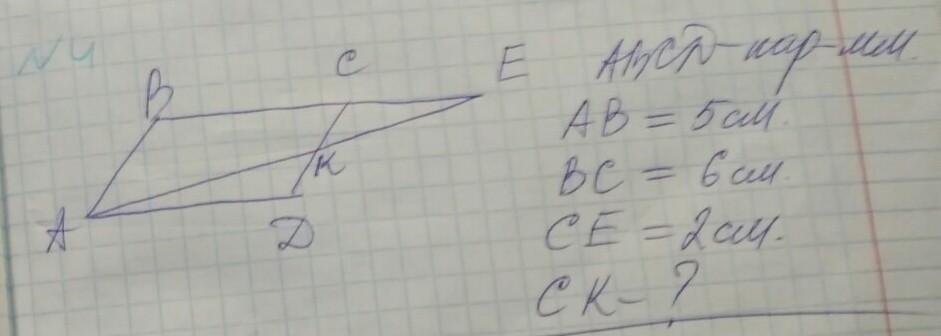 N4
B
C
E
K
A
D
ABCD - пар-мм.
AB = 5 см.
BC = 6 см.
CE = 2 см.
CK - ?